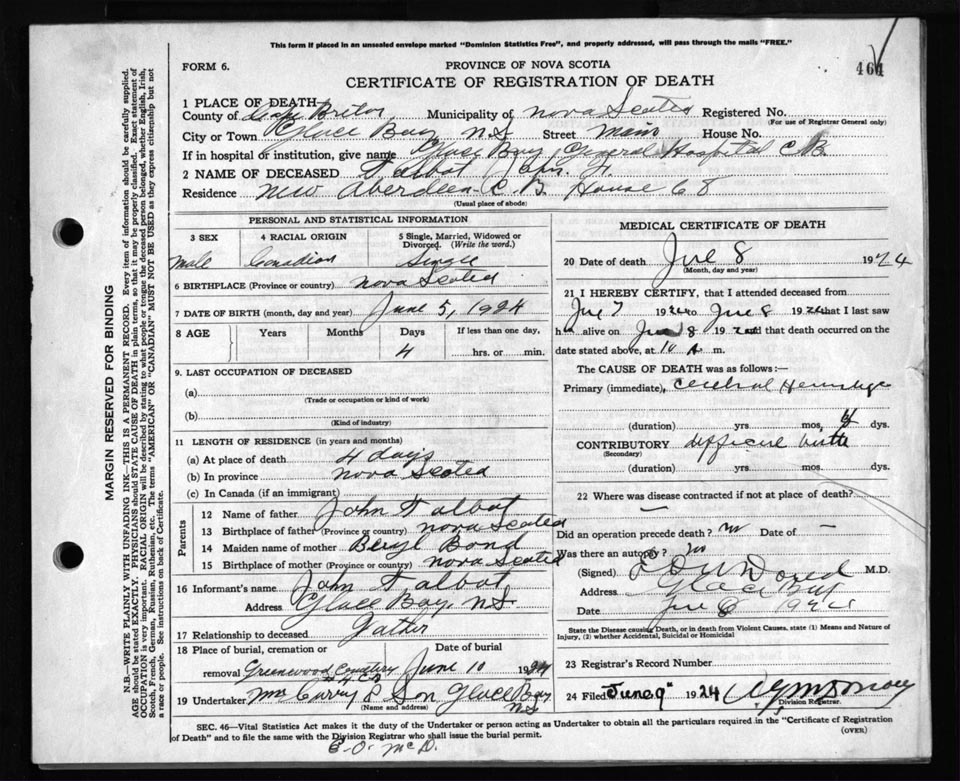 This form if placed in an unsealed envelope marked "Dominion Statistics Free", and properly addressed, will pass through the mails "FREE."
464
FORM 6.
PROVINCE OF NOVA SCOTIA
CERTIFICATE OF REGISTRATION OF DEATH
1 PLACE OF DEATH
County of Cape Breton Municipality of Nova Scotia Registered No.
(For use of Registrar General only)
City or Town Glace Bay N.S Street Main House No.
If in hospital or institution, give name Glace Bay General Hospital C.B.
2 NAME OF DECEASED Talbot John Jr.
Residence New Aberdeen C.B. House 68
(Usual place of abode)
PERSONAL AND STATISTICAL INFORMATION
3 SEX 4 RACIAL ORIGIN 5 Single, Married, Widowed or Divorced. (Write the word.)
Male Canadian Single
6 BIRTHPLACE (Province or country) Nova Scotia
7 DATE OF BIRTH (month, day and year) June 5, 1924
8 AGE Years Months Days If less than one day,
4 hrs. or min.
9. LAST OCCUPATION OF DECEASED
(a)
(Trade or occupation or kind of work)
(b)
(Kind of industry)
11 LENGTH OF RESIDENCE (in years and months)
(a) At place of death 4 days
(b) In province Nova Scotia
(c) In Canada (if an immigrant)
Parents
12 Name of father John Talbot
13 Birthplace of father (Province or country) Nova Scotia
14 Maiden name of mother Beryl Bond
15 Birthplace of mother (Province or country) Nova Scotia
16 Informant's name John Talbot
Address Glace Bay, N.S
17 Relationship to deceased Father
18 Place of burial, cremation or removal Date of burial
Greenwood Cemetery June 10 1924
19 Undertaker Curry & Son Glace Bay
(Name and address) N.S
MEDICAL CERTIFICATE OF DEATH
20 Date of death June 8 1924
(Month, day and year)
21 I HEREBY CERTIFY, that I attended deceased from
June 7 1924 to June 8 1924 that I last saw
h alive on June 8 1924 and that death occurred on
date stated above, at m.
The CAUSE OF DEATH was as follows:—
Primary (immediate), Cerebral Hemorrhage
(duration) yrs. mos, dys.
CONTRIBUTORY difficult birth
(Secondary)
(duration) yrs. mos. dys.
22 Where was disease contracted if not at place of death? —
Did an operation precede death? no Date of —
Was there an autopsy? no
(Signed) M.D.
Address Glace Bay
Date June 8 1924
State the Disease causing Death, or in death from Violent Causes, state (1) Means and Nature of
Injury, (2) whether Accidental, Suicidal or Homicidal
23 Registrar's Record Number
24 Filed June 9" 1924
Division Registrar.
SEC. 46—Vital Statistics Act makes it the duty of the Undertaker or person acting as Undertaker to obtain all the particulars required in the "Certificate of Registration
of Death" and to file the same with the Division Registrar who shall issue the burial permit.
(OVER)
MARGIN RESERVED FOR BINDING
N.B.—WRITE PLAINLY WITH UNFADING INK—THIS IS A PERMANENT RECORD. Every item of information should be carefully supplied.
AGE should be stated EXACTLY. PHYSICIANS should STATE CAUSE OF DEATH in plain terms, so that it may be properly classified. Exact statement of
OCCUPATION is very important. RACIAL ORIGIN will be described by stating to what people or tongue the deceased person belonged, whether English, Irish,
Scotch, French, German, Russian, Ruthenian, etc. The terms "AMERICAN" OR "CANADIAN" MUST NOT BE USED as they express citizenship but not
a race or people. See instructions on back of Certificate.